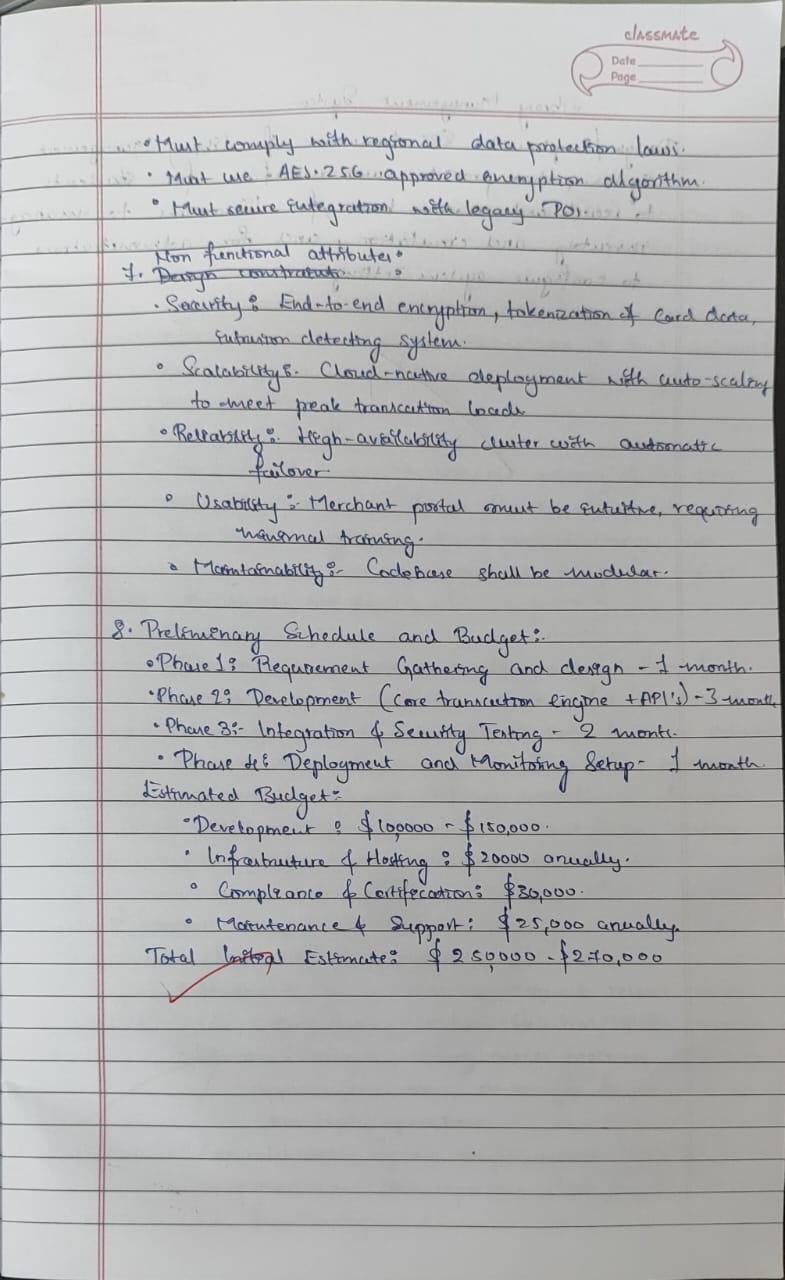 classmate
Date
Page
• Must comply with regional data protection laws.
• Must use AES-256 approved encryption algorithm.
• Must secure integration with legacy POS.
Non functional attributes:
7. Design constraints :
• Security : End-to-end encryption, tokenization of card data,
intrusion detecting system.
• Scalability :- Cloud-native deployment with auto-scaling
to meet peak transcation loads
• Reliability :- High-availability cluster with automatic
failover.
• Usability :- Merchant portal must be intuitive, requiring
minimal training.
• Maintainability :- Codebase shall be modular.
8. Preliminary Schedule and Budget :-
• Phase 1 : Requirement Gathering and design - 1 month.
• Phase 2 : Development (core transcation engine + API's) - 3 month
• Phase 3 :- Integration & Security Testing - 2 month.
• Phase 4 : Deployment and Monitoring Setup - 1 month.
Estimated Budget :-
• Development : $100,000 - $150,000.
• Infrastruture & Hosting : $20000 anually.
• Compliance & Certification : $30,000.
• Maintenance & Support : $25,000 anually.
Total Initial Estimate : $250,000 - $270,000